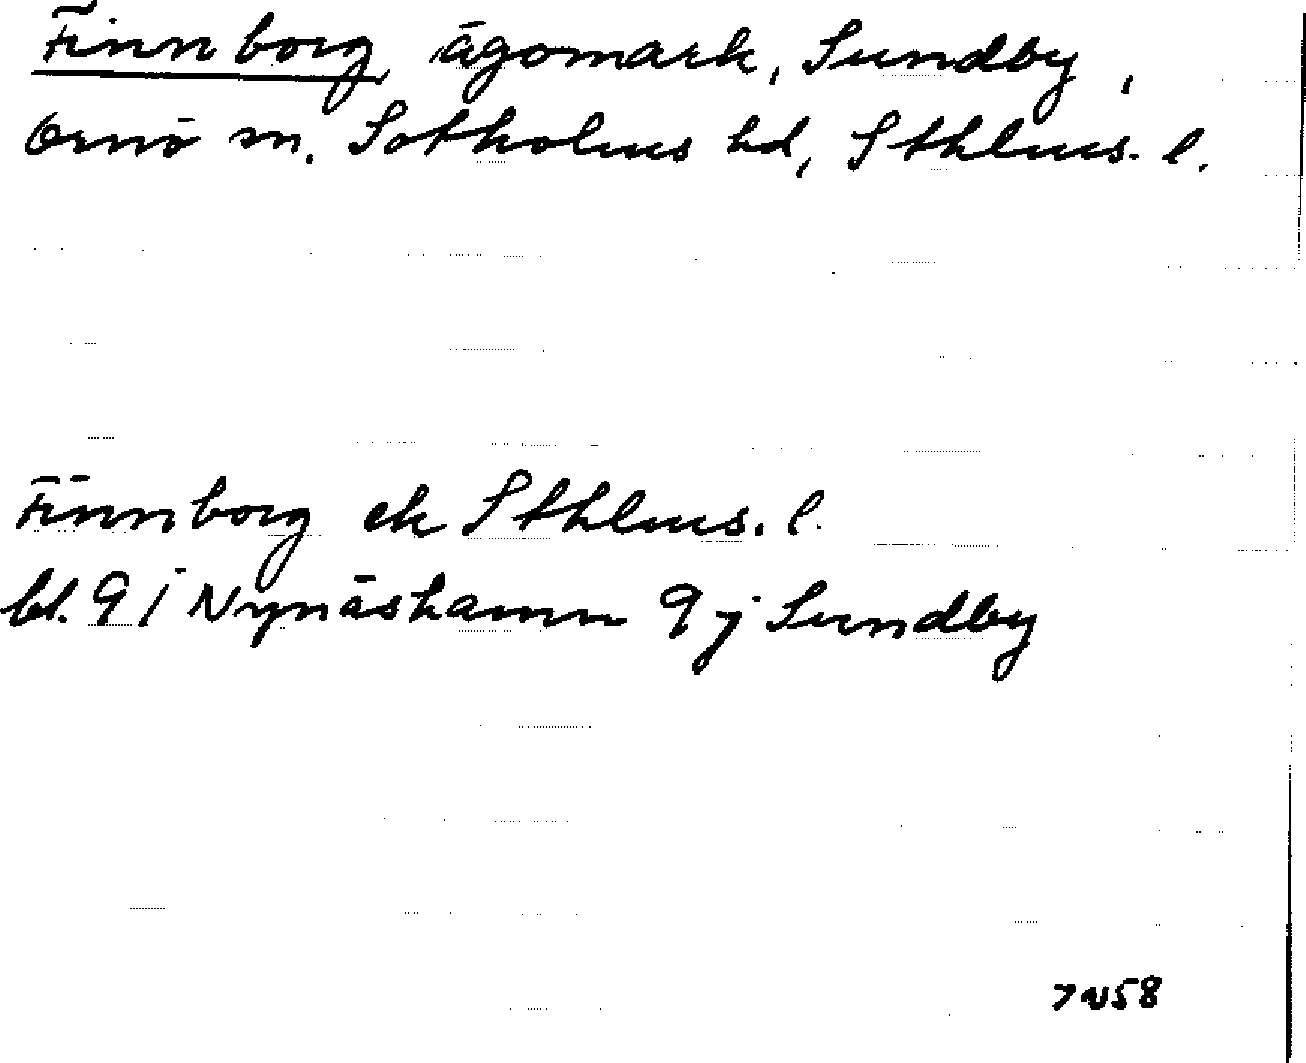 Finnborg, ägomark, Sundby,
Ornö sn. Sotholms hd, Sthlms. l.
Finnborg ek Sthlms. l.
bl. 9 i Nynäshamn 9 j Sundby